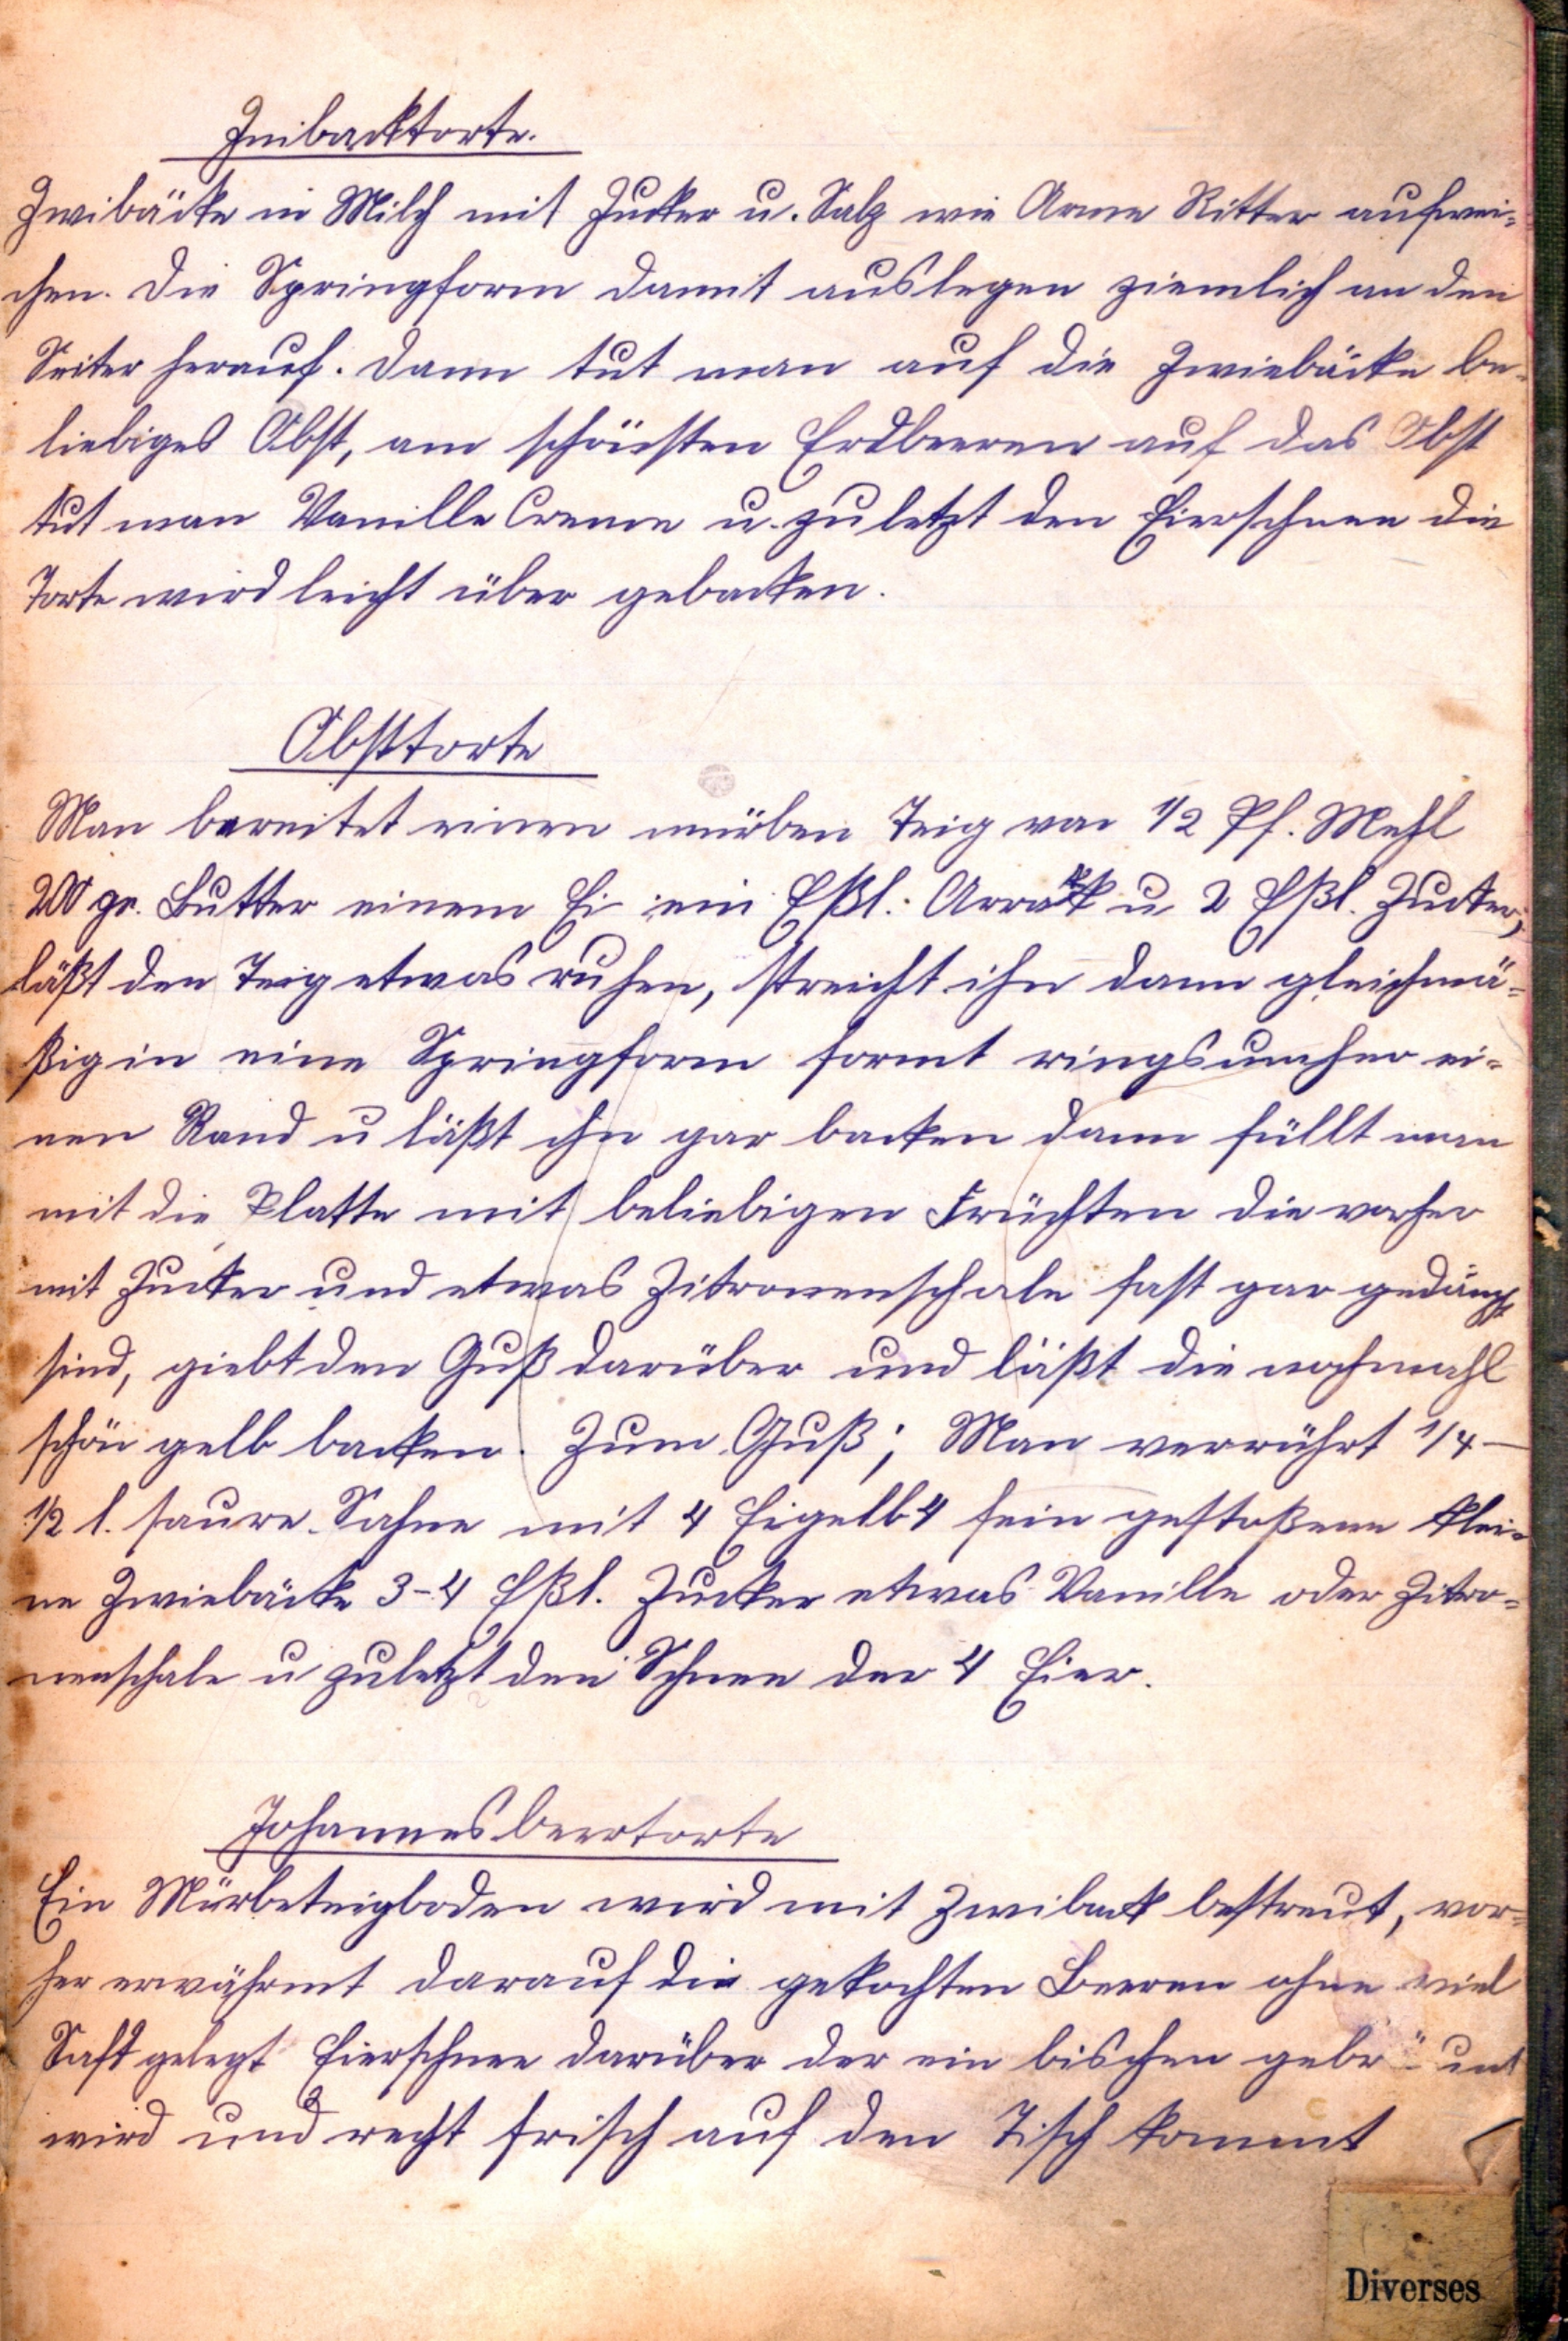 Zwibacktorte.
Zwibäcke in Milch mit Zucker u. Salz wie Arme Ritter aufwei-
chen. Die Springform damit auslegen ziemlich an den
Seiten herauf. Dann tut man auf die Zwiebäcke be-
liebiges Obst, am schönsten Erdbeeren auf das Obst
tut man Vanille Creme u. zuletzt den Eierschnee die
Torte wird leicht über gebacken.
Obsttorte
Man bereitet einen mürben Teig von 1/2 Pf. Mehl
200 gr. Butter einem Ei ein Eßl. Arrak u 2 Eßl. Zucker,
läßt den Teig etwas ruhen, streicht ihn dann gleichmä-
ßig in eine Springform formt ringsumher ei-
nen Rand u läßt ihn gar backen dann füllt man
mit die Platte mit beliebigen Früchten die vorher
mit Zucker und etwas Zitronenschale fast gar gedämpft
sind, giebt den Guß darüber und läßt die nochmahl
schön gelb backen. Zum Guß; Man verrührt 1/4 –
1/2 l. saure Sahne mit 4 Eigelb 4 fein gestoßene klei-
ne Zwiebäcke 3-4 Eßl. Zucker etwas Vanille oder Zitro-
nenschale u zuletzt den Schnee der 4 Eier.
Johannesbeertorte
Ein Mürbeteigboden wird mit Zwiback bestreut, vor-
her erwährmt darauf die gekochten Beeren ohne viel
Saft gelegt Eierschnee darüber der ein bischen gebräunt
wird und recht frisch auf den Tisch kommt
Diverses